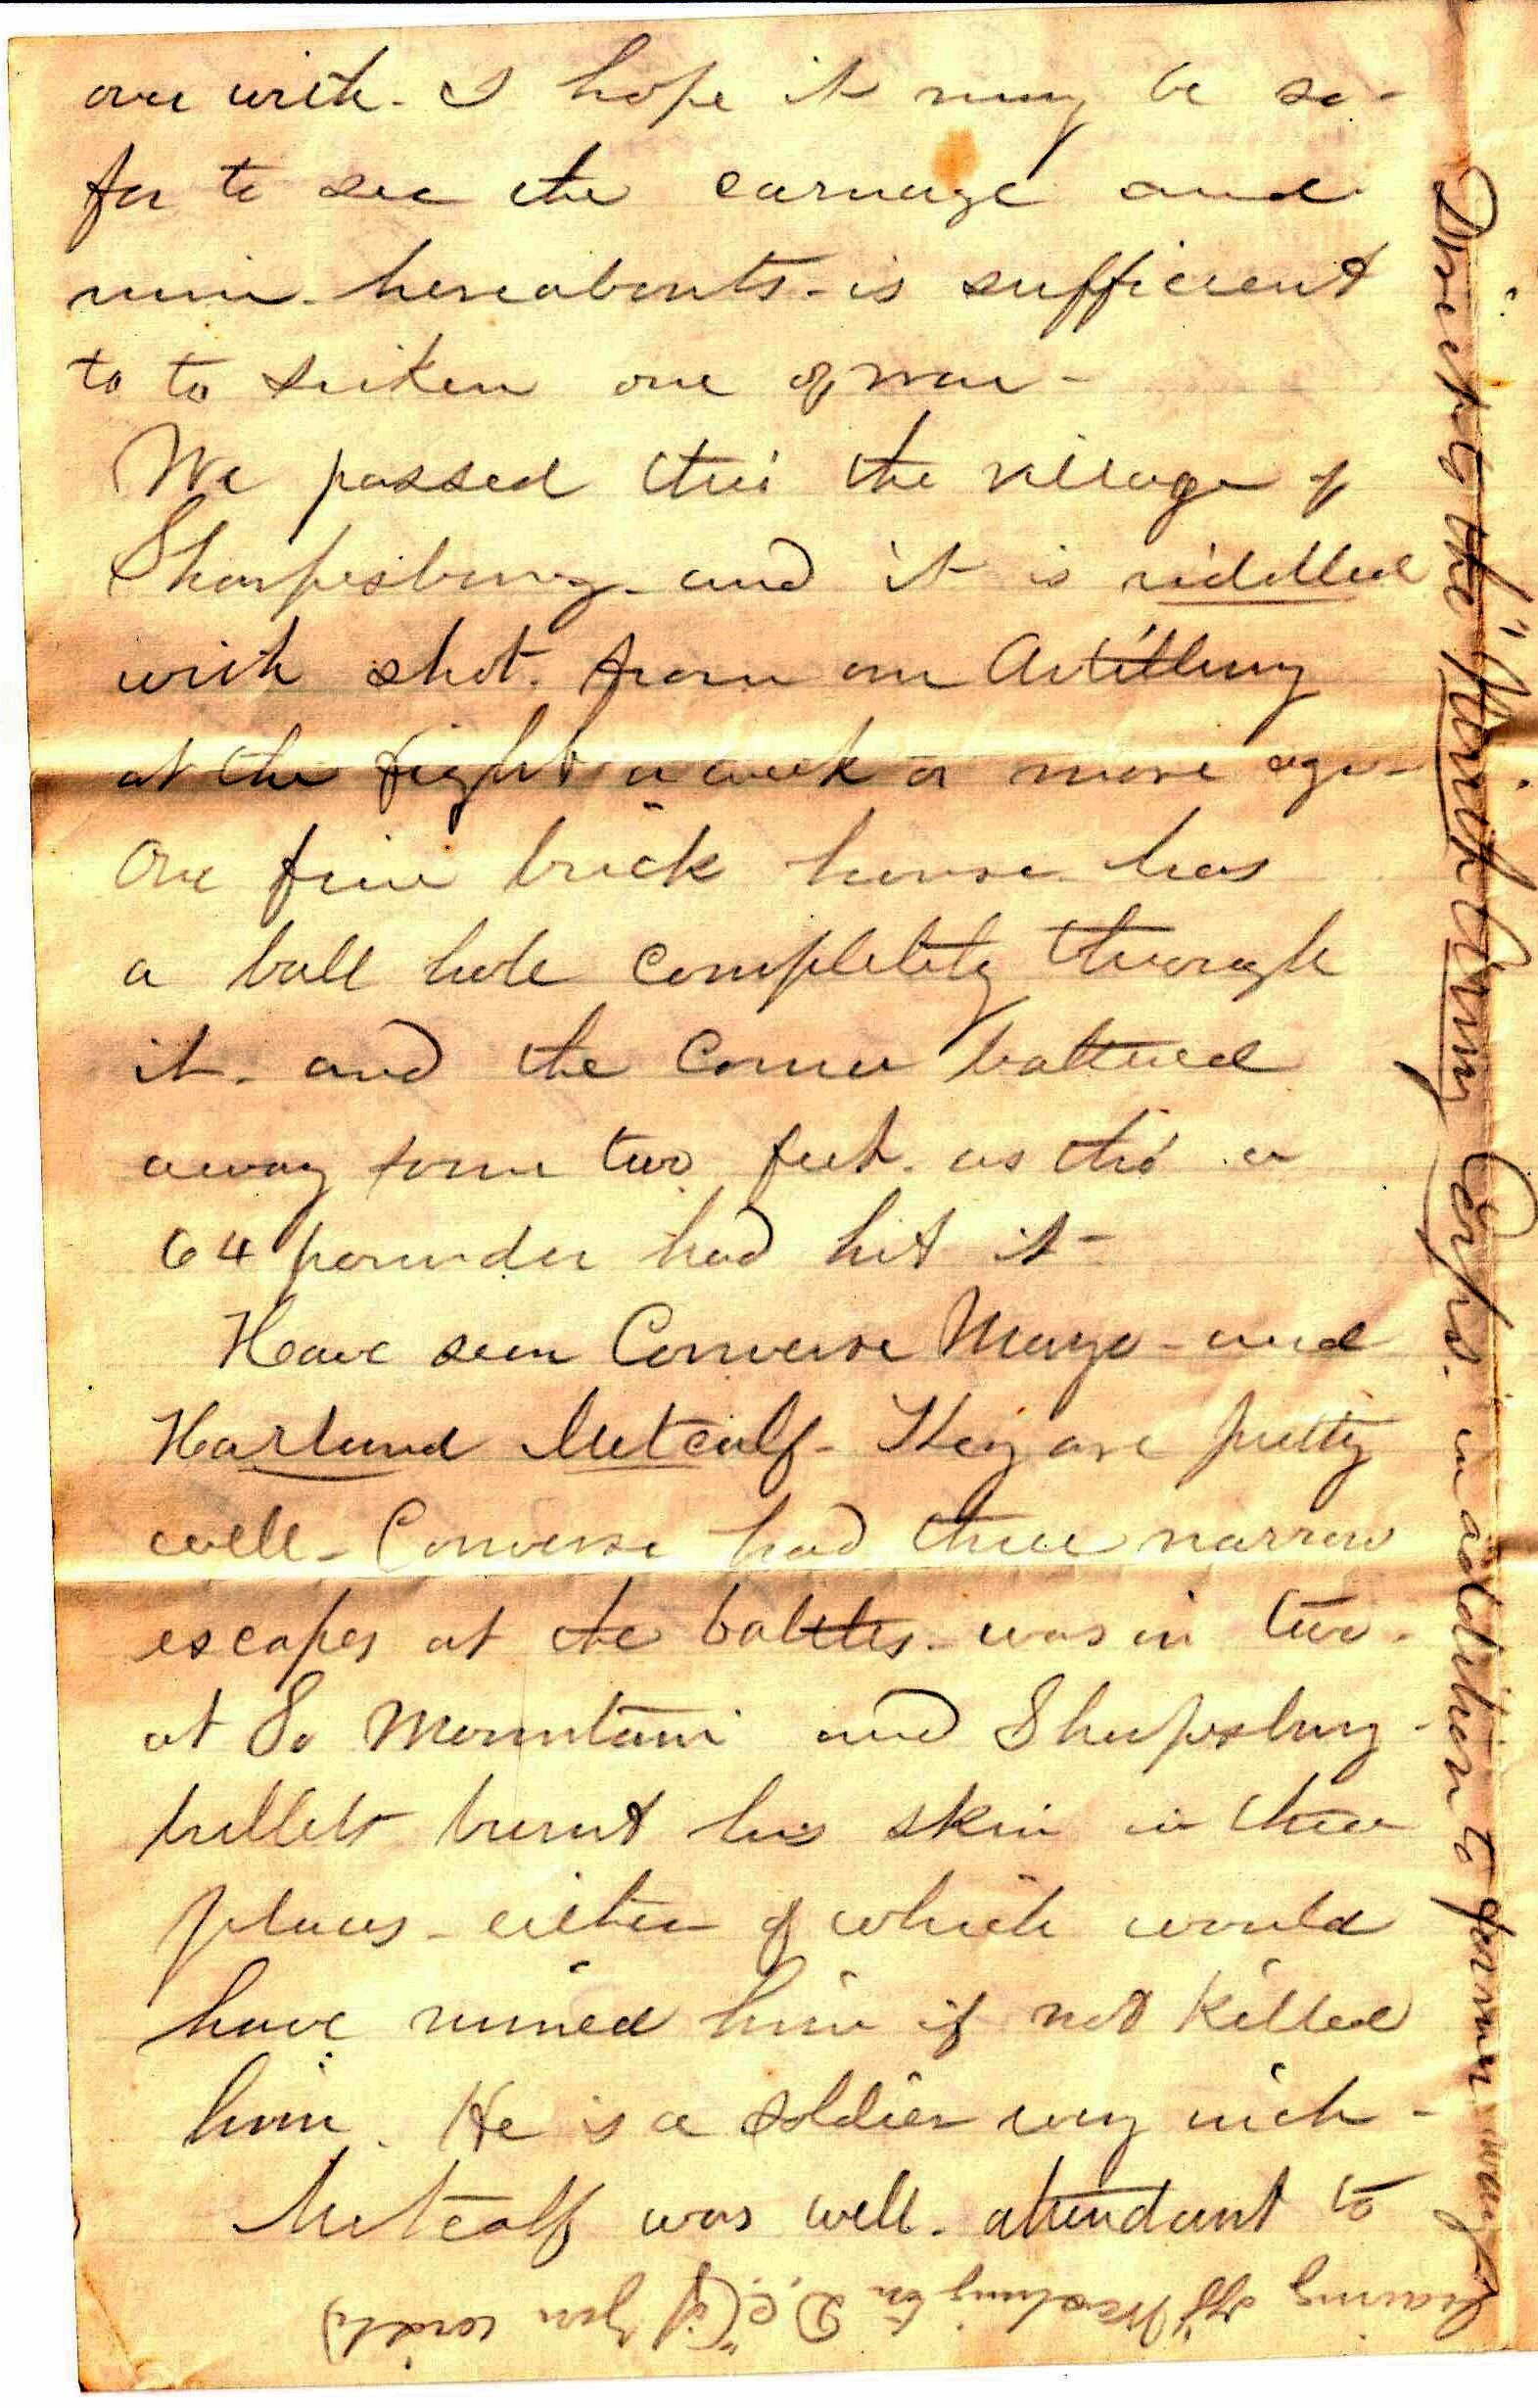 over with. I hope it may be so -
for to see the carnage and
ruin - hereabouts - is sufficient
to to siken one of war -
We passed thro' the village of
Sharpesburg - and it is riddled
with shot. from our Artillery
at the fight a week or more ago -
One fine brick house has
a ball hole completely through
it. and the corner battered
away some two feet. as tho' a
64 pounder had hit it -
Have seen Converse Mayo - and
Harland Metcalf - They are pretty
well - Converse had three narrow
escapes at the battles - was in two -
at So Mountain and Sharpsburg -
bullets burnt his skin in three
places - either of which would
have ruined him if not killed
him. He is a soldier very
Metcalf was well. attendant to
Direct to the "Ninth Army Corps. in addition to former way
leaving off "Washington D.C." (if you write)